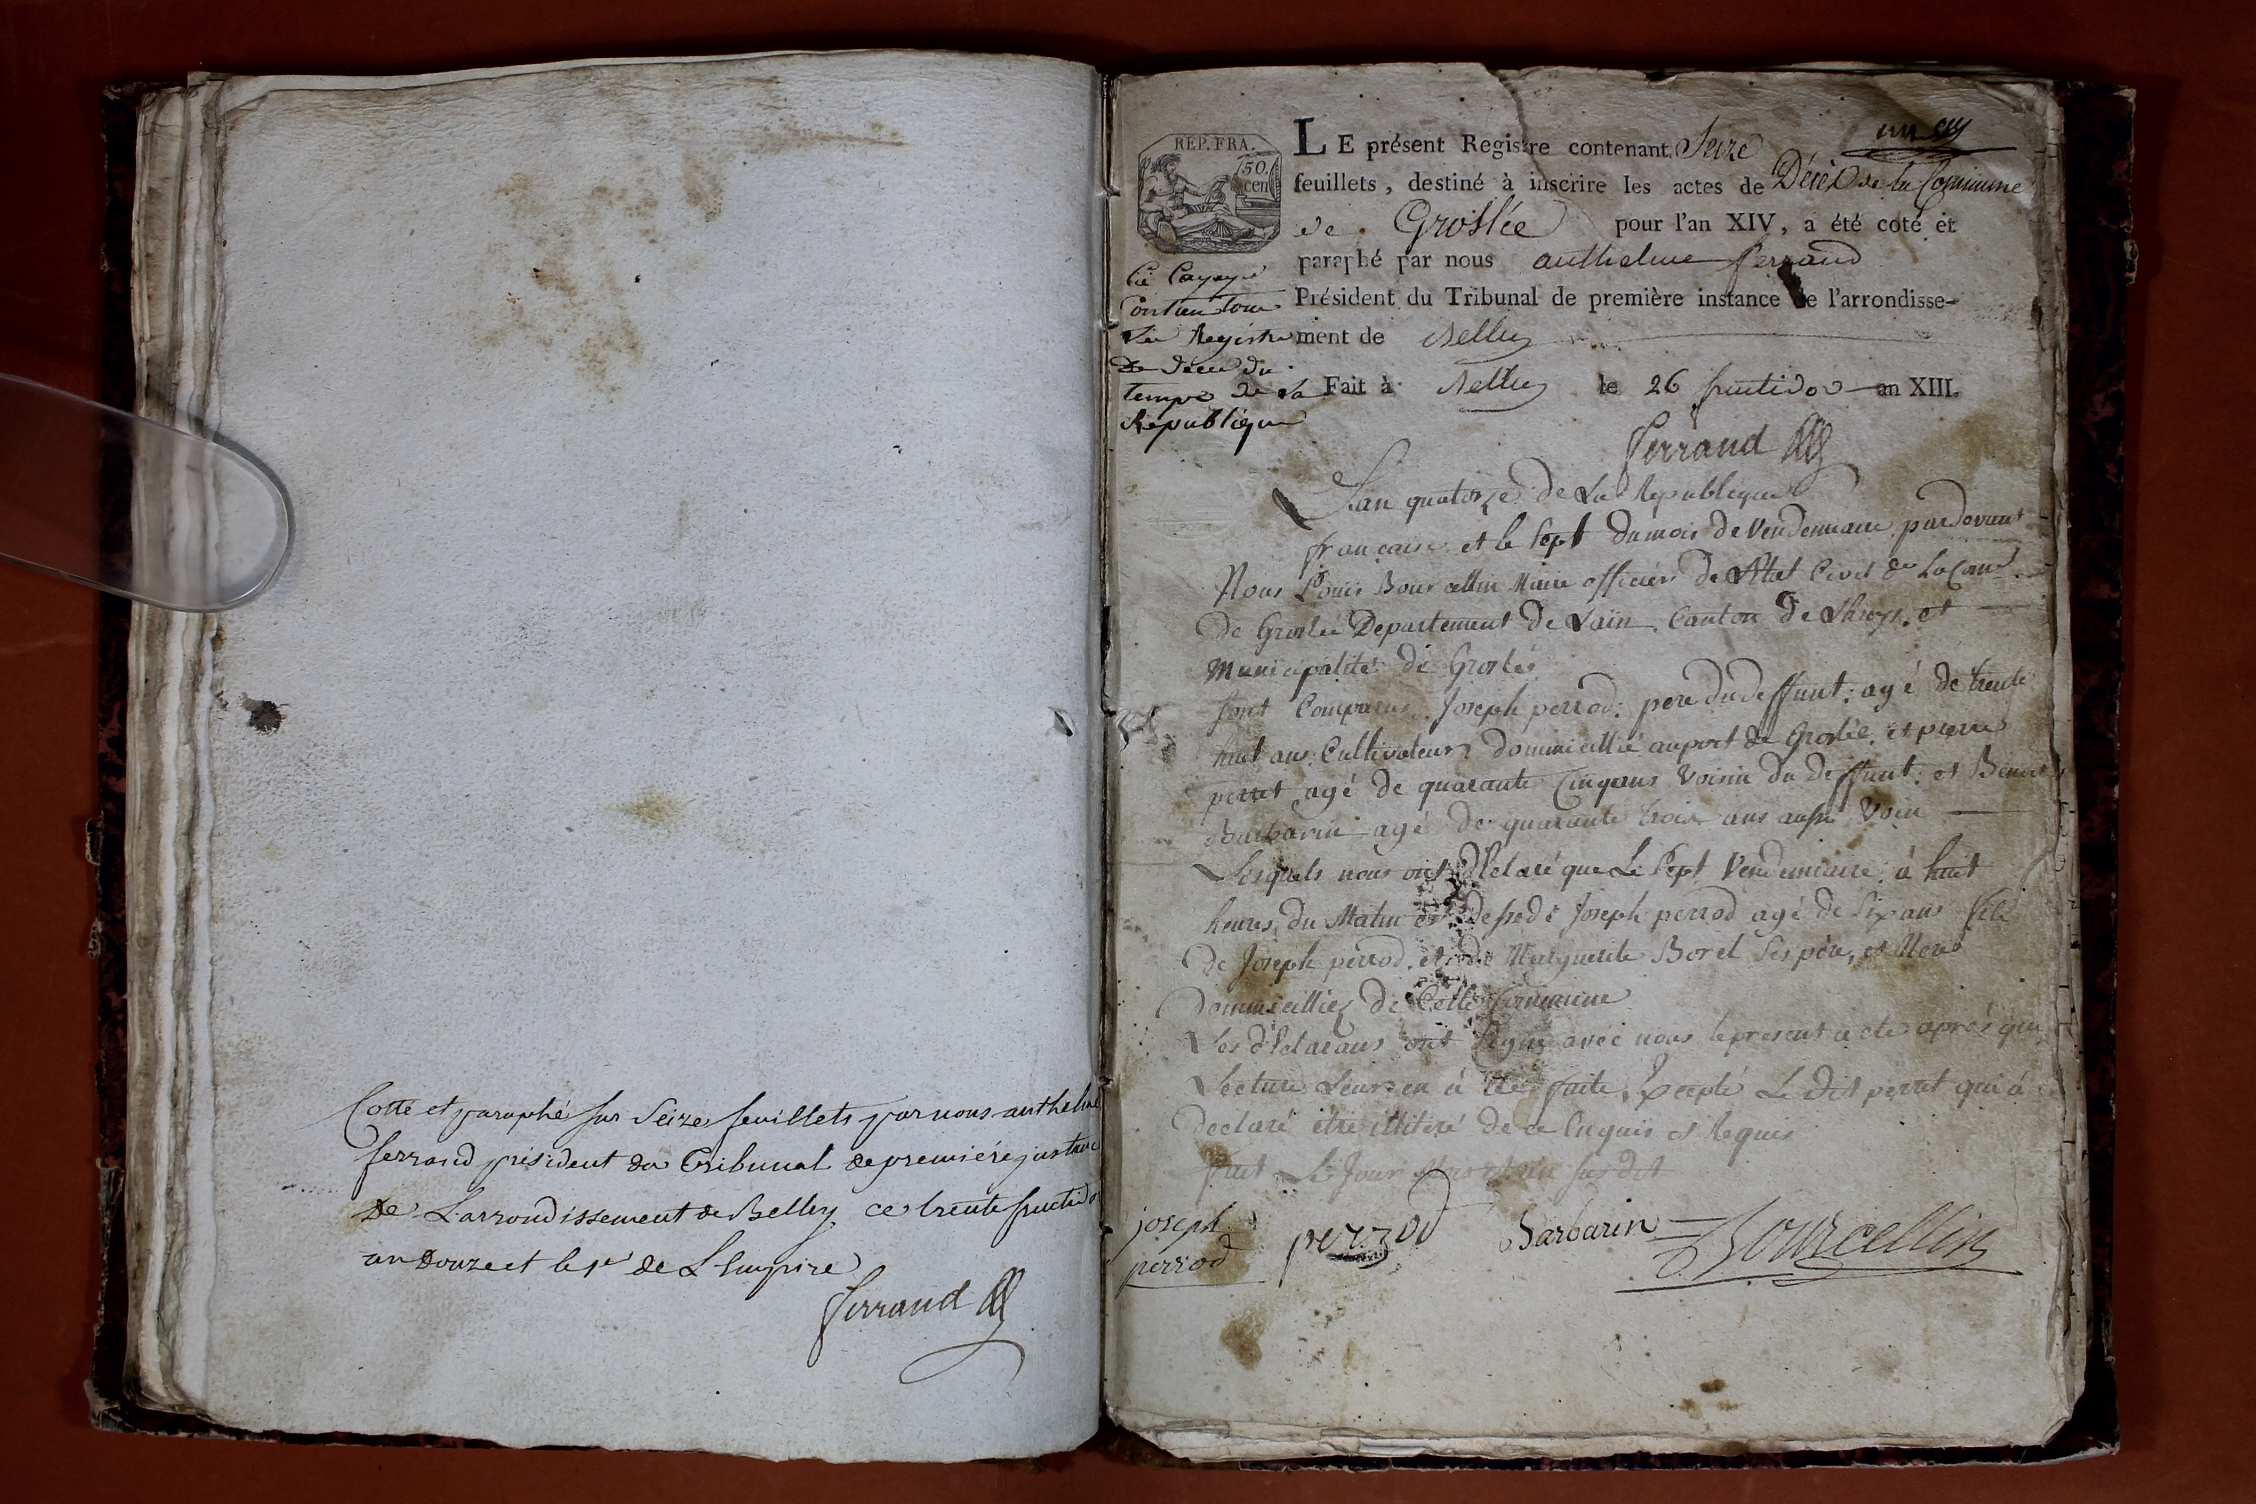 Cotté et paraphé sur Seize feuillets par nous anthelme
ferrand président du Tribunal de premiére instance
de L'arrondissement de Belley ce trente fructidor
an Douze et le 1er de L'Empire
ferrand
REP. FRA.
50 cen
un
LE présent Registre contenant Seize
feuillets, destiné à inscrire les actes de Décès de la Commune
de Groslée pour l'an XIV, a été coté et
paraphé par nous anthelme ferrand
Président du Tribunal de première instance de l'arrondisse-
ment de Belley
Fait à Belley le 26 fructidor an XIII.
ferrand
Ce
Contient tous
Les Registre
De Décé du
temps de La
République
L'an quatorze de La Republique
française et le sept du mois de Vendemiaire pardevant
Nous Louis Bourcellin Maire officier de l'Etat Civil de La Com.e
de Groslée Departement de L'ain, Canton de Lhuys, et
Municipalité de Groslée
sont Comparus Joseph perrod, pere du deffunt, agé de trente
huit ans Cultivateur domicillié au port de Groslée, et pierre
perret agé de quarante Cinq ans Voisin du Deffunt, et Benoit
Barbarin agé de quarante trois ans aussi Voin
Lesquels nous ont déclaré que Le sept Vendemiaire à huit
heures du Matin est dessedé Joseph perrod agé de six ans fils
de Joseph perrod, et de Marguerite Borel ses père, et Mere
dommicilliez de Cette Commune
Les déclarans ont signé avec nous le present acte aprés que
Lecture Leurs en à été faite, Excepté Le dit perret qui à
declaré être illitéré de ce Enquis et Requis
fait Le Jour Mois et an susdit
joseph
perrod
perrod Barbarin Bourcellin